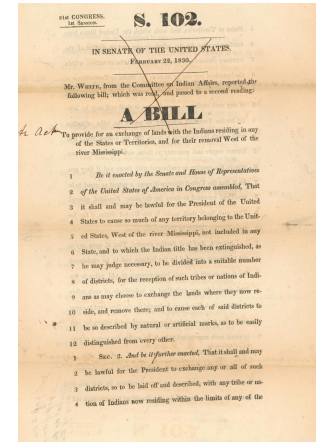 21st CONGRESS,
1st Session.
S. 102.
IN SENATE OF THE UNITED STATES,
FEBRUARY 22, 1830.
Mr. WHITE, from the Committee on Indian Affairs, reported the
following bill; which was read, and passed to a second reading:
A BILL
Act
To provide for an exchange of lands with the Indians residing in any
of the States or Territories, and for their removal West of the
river Mississippi.
1 Be it enacted by the Senate and House of Representatives
2 of the United States of America in Congress assembled, That
3 it shall and may be lawful for the President of the United
4 States to cause so much of any territory belonging to the Unit-
5 ed States, West of the river Mississippi, not included in any
6 State, and to which the Indian title has been extinguished, as
7 he may judge necessary, to be divided into a suitable number
8 of districts, for the reception of such tribes or nations of Indi-
9 ans as may choose to exchange lands where they now re-
10 side, and remove there; and to cause each of said districts to
11 be so described by natural or artificial marks, as to be easily
12 distinguished from every other.
1 SEC. 2. And be it further enacted, That it shall and may
2 be lawful for the President to exchange any or all of such
3 districts, so to be laid off and described, with any tribe or na-
4 tion of Indians now residing within the limits of any of the